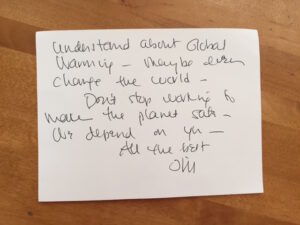 Understand about Global
Warming - maybe even
change the world -
Don't stop working to
make the planet safe -
We depend on you -
All the best